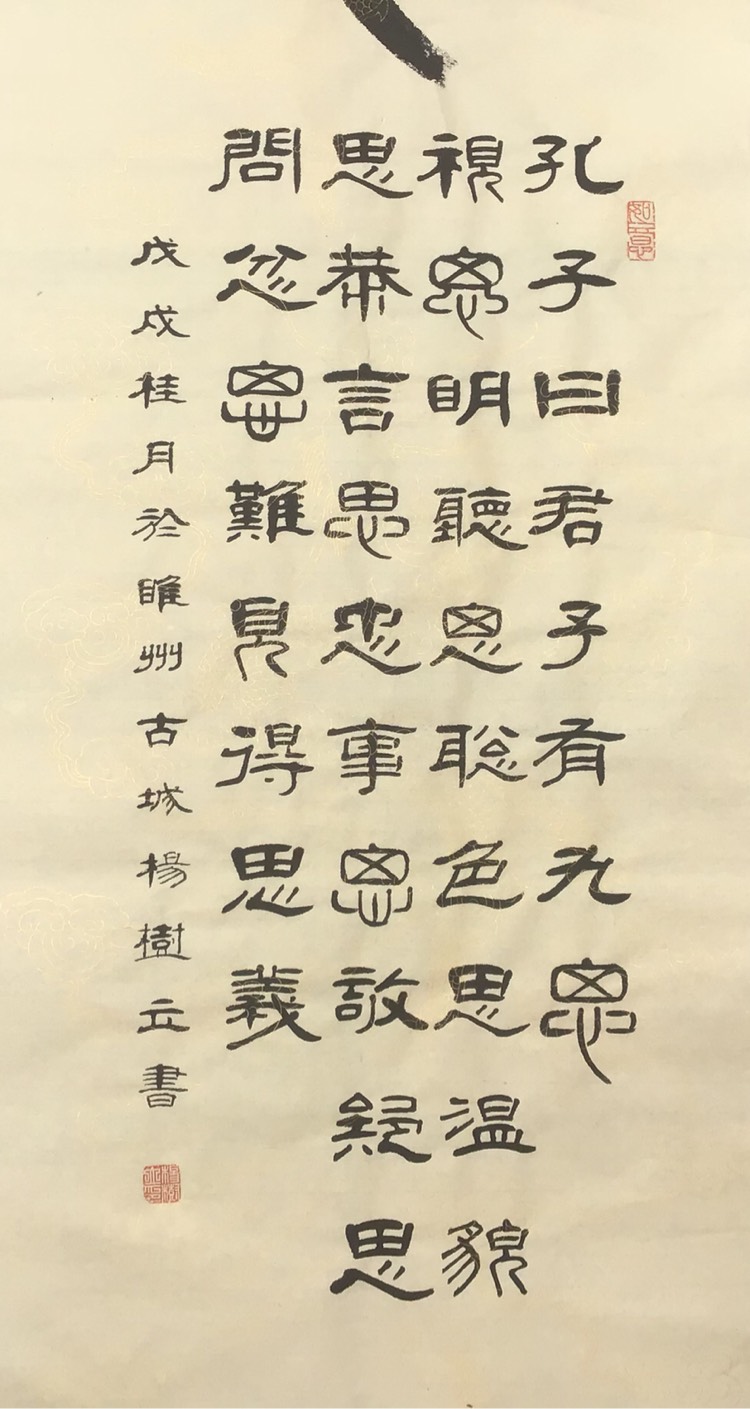 如意
孔子曰君子有九思
視思明聽思聡色思温貌
思恭言思忠事思敬疑思
問忿思難見得思義
戊戌桂月於睢州古城楊樹立書
楊樹立印